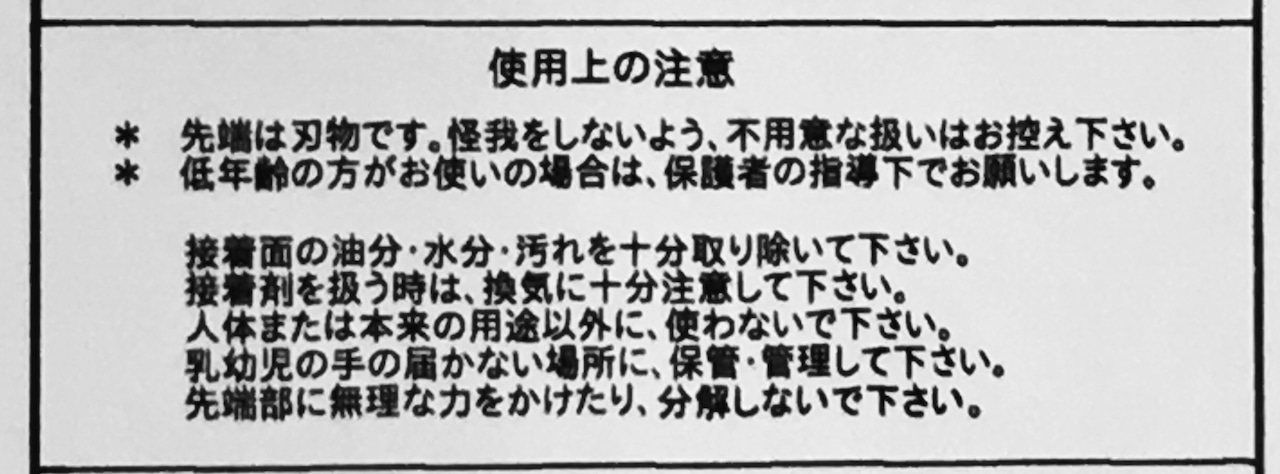 使用上の注意
* 先端は刃物です。怪我をしないよう、不用意な扱いはお控え下さい。
* 低年齢の方がお使いの場合は、保護者の指導下でお願いします。
接着面の油分・水分・汚れを十分取り除いて下さい。
接着剤を扱う時は、換気に十分注意して下さい。
人体または本来の用途以外に、使わないで下さい。
乳幼児の手の届かない場所に、保管・管理して下さい。
先端部に無理な力をかけたり、分解しないで下さい。